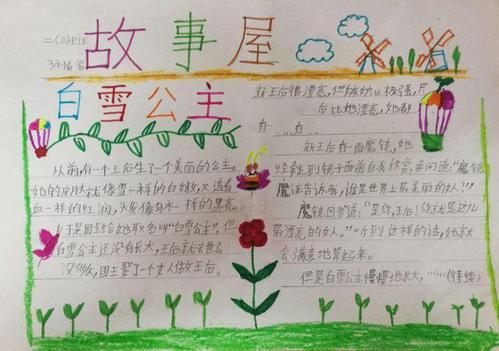 故事屋
二(三)
白雪公主
从前,有一个王后生了一个美丽的公主。
她的皮肤就像雪一样的白嫩,又透着
血一样的红润,头发像乌木一样的黑亮
于是国王给她取名叫“白雪公主”,但
白雪公主还没有长大,王后就去世了。
没多久,国王娶了一个女人做王后。
新王后很漂亮,但她妒忌心极强,只
后比她漂亮,她都
新王后有一面魔镜,她
经常走到镜子面前自我欣赏,并问道:“魔
魔镜告诉我,谁是世界上最美丽的女人?”
魔镜回答道:“是你,王后!你就是这儿
最漂亮的女人。”听到这样的话,她就
会满意地笑起来。
但是白雪公主慢慢地长大,……(待续)